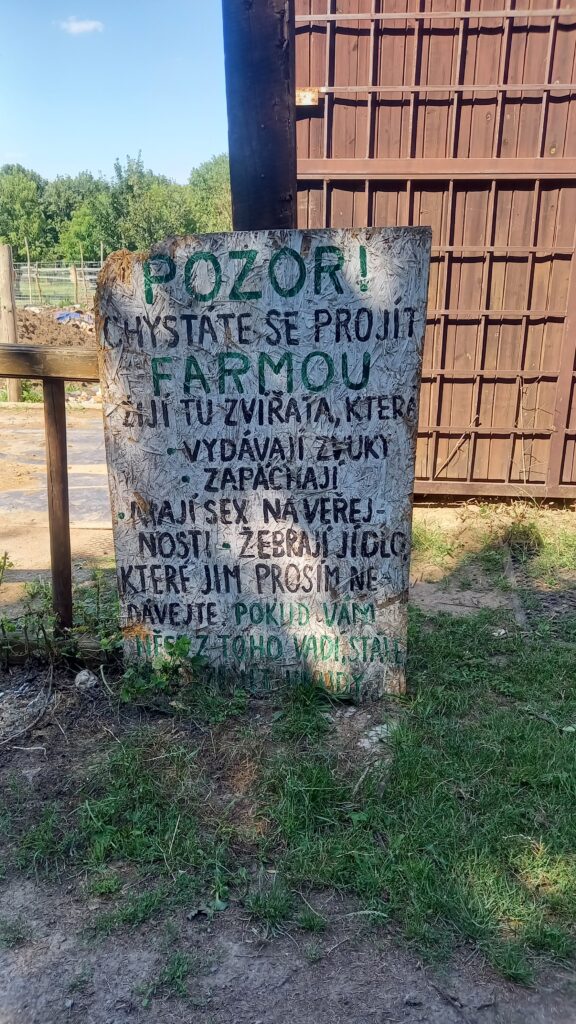 POZOR!
CHYSTÁTE SE PROJÍT
FARMOU
ŽIJÍ TU ZVÍŘATA, KTERÁ
• VYDÁVAJÍ ZVUKY
• ZAPÁCHAJÍ
• MAJÍ SEX NA VEŘEJ-
NOSTI • ŽEBRAJÍ JÍDLO,
KTERÉ JIM PROSÍM NE-
DÁVEJTE. POKUD VÁM
NĚCO Z TOHO VADÍ, STÁLE